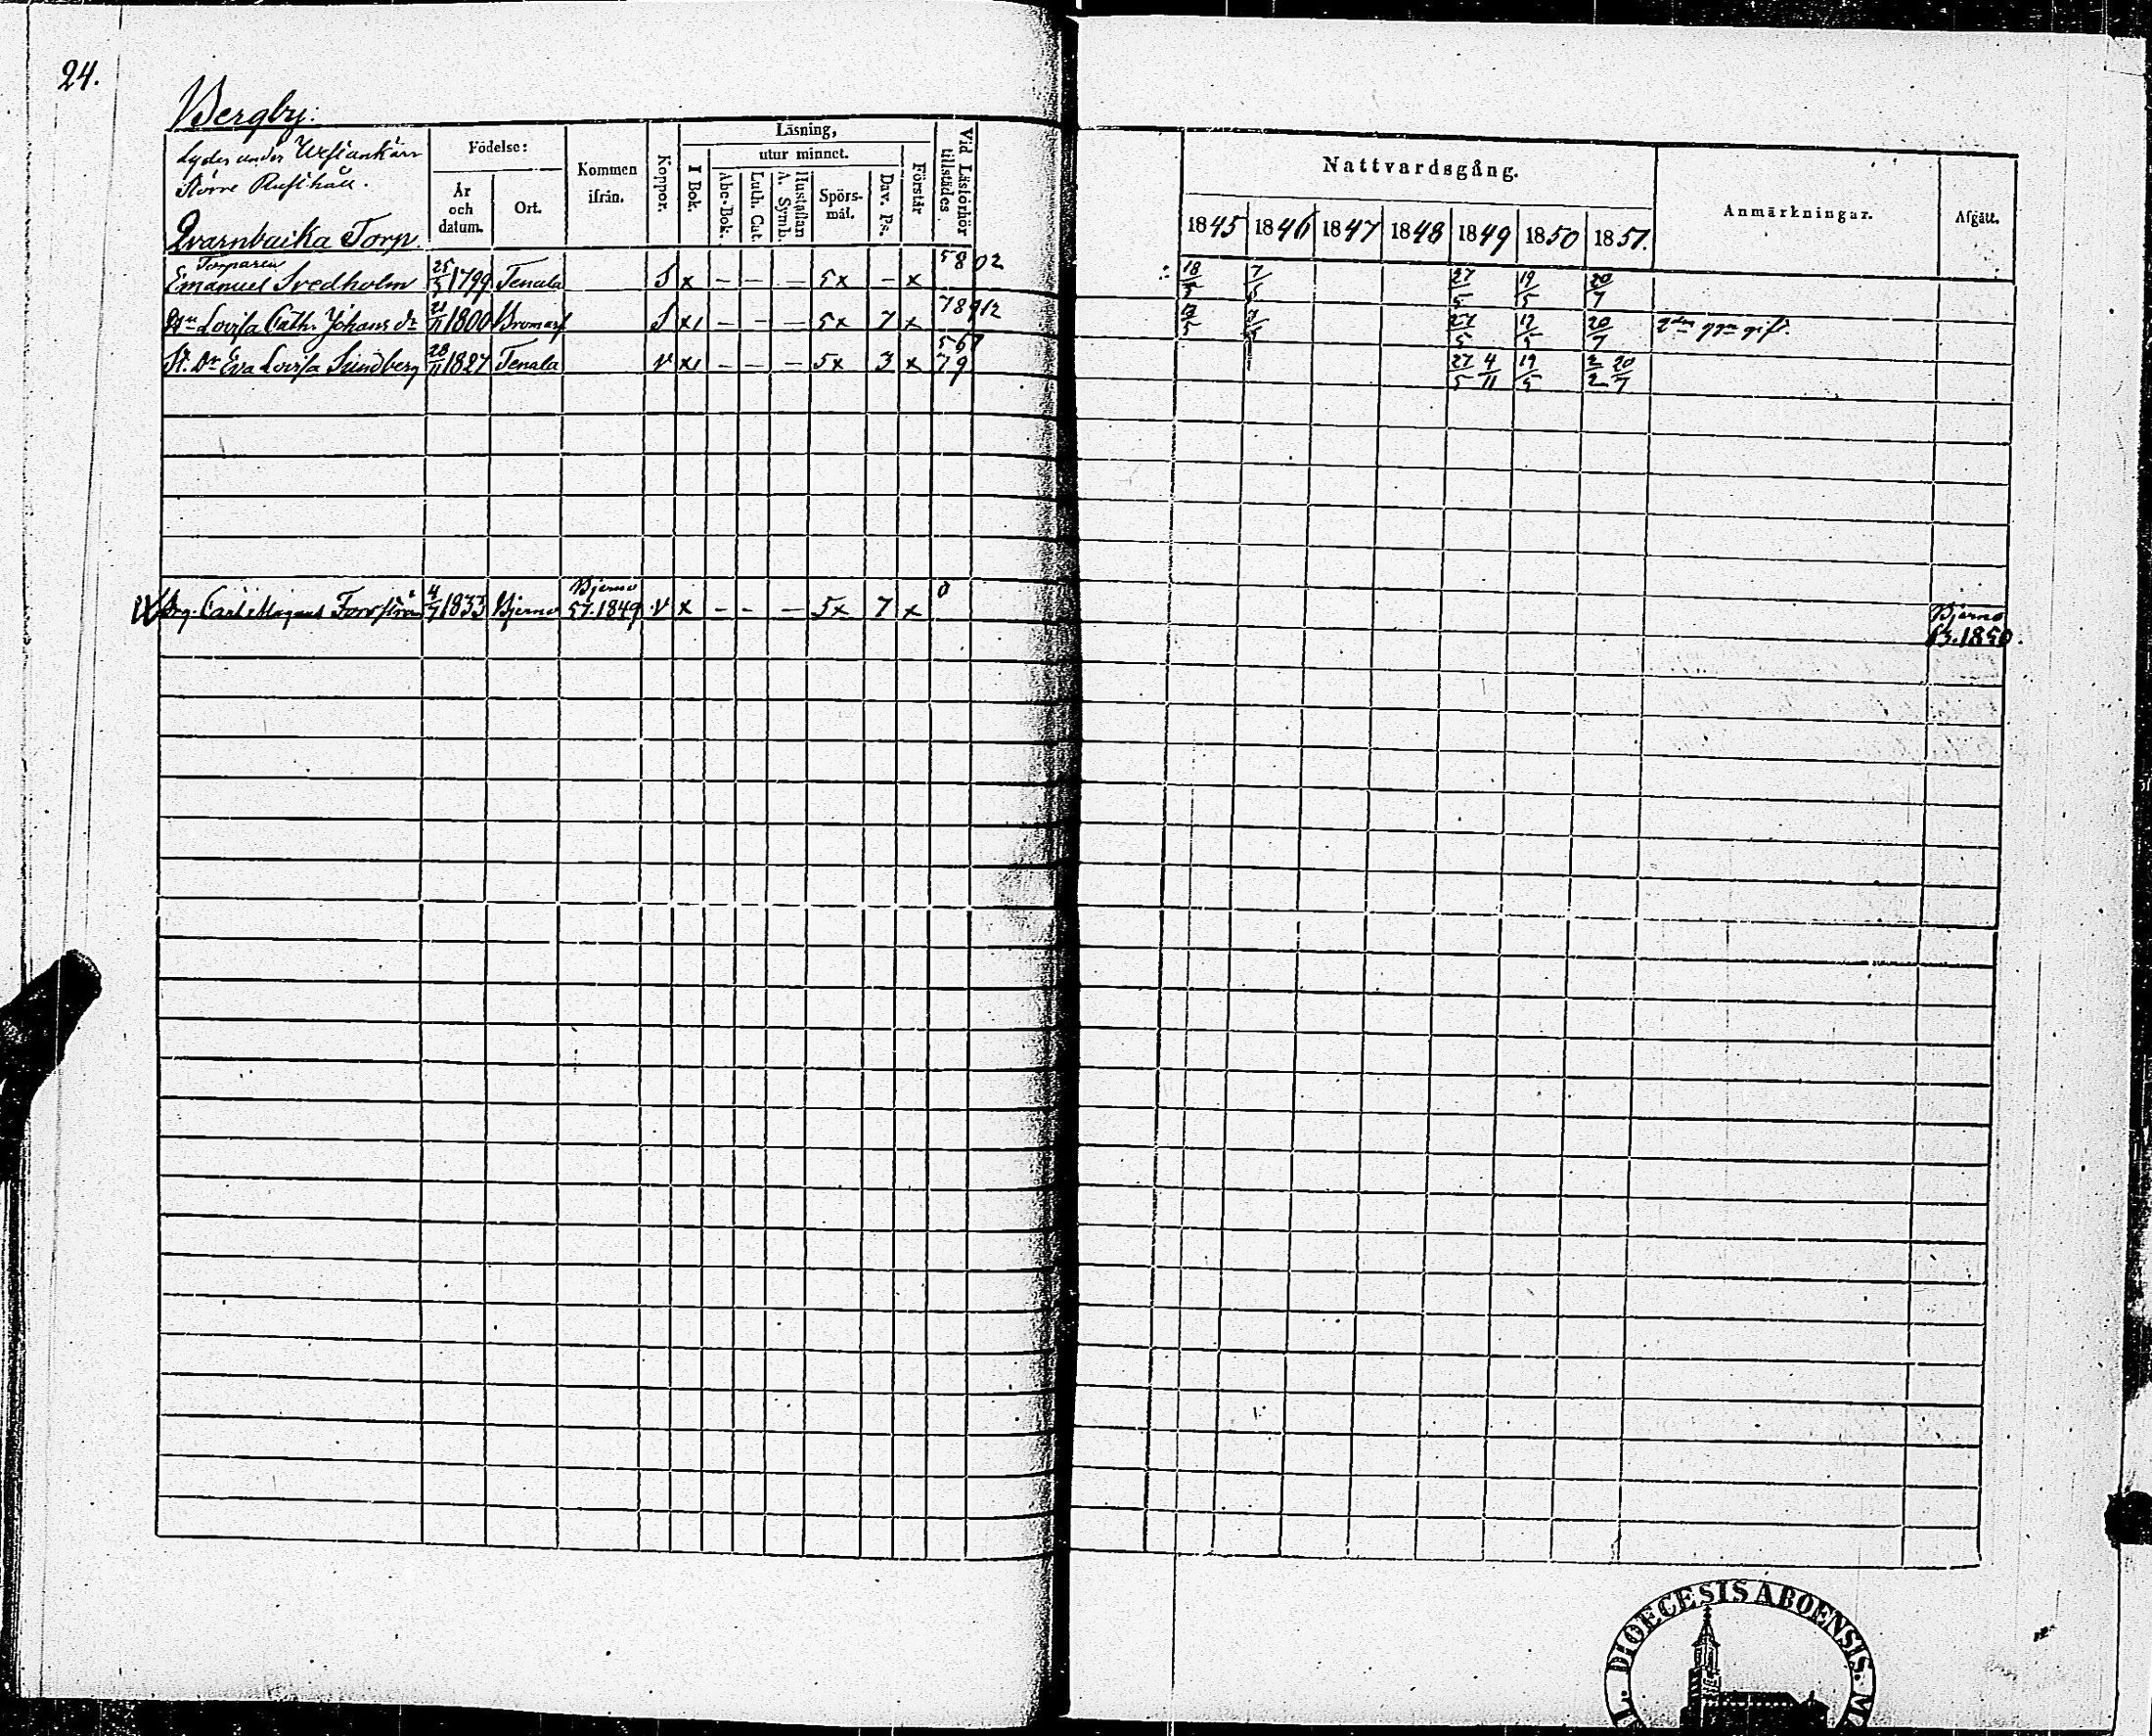 24.
Bergby:
Lyder under Westankärr
större Rusthåll.
Qvarnbacka Torp.
Födelse:
År och datum.
Ort.
Kommen ifrån.
Koppor.
Läsning,
I Bok.
utur minnet.
Abc-Bok.
Luth. Cat.
Hustaflan A. Symb.
Spörsmål.
Dav. Ps.
Förstår
Vid Läsförhör tillstädes
Nattvardsgång.
1845 1846 1847 1848 1849 1850 1851.
Anmärkningar.
Afgått.
Torparen
Emanuel Svedholm 25/3 1799 Tenala S x – – – 5x – x 58 02 18/5 7/5 27/5 19/5 20/7
Lovisa Cath. Johans dr 21/11 1800 Bromarf S x1 – – – 5x 7 x 78912 27/5 19/5 20/7 2dra ggn gift.
St. Dr Eva Lovisa Sundberg 28/11 1827 Tenala v x1 – – – 5x 3 x 567 79 27/5 4/11 19/5 2/2 20/7
Carl Magnus Forsström 4/7 1833 Bjerno Bjerno 57.1849 v x – – – 5x 7 x 0 Bjerno 63.1850.
DIOECESIS ABOENSIS. M